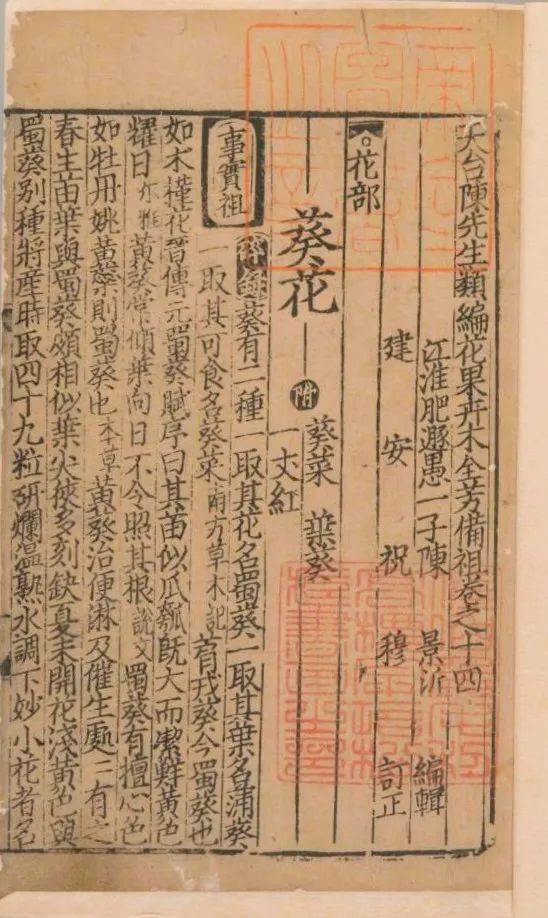 天台陳先生類編花果卉木全芳備祖卷之十四
江淮肥遯愚一子陳 景沂 編輯
建安祝穆 訂正
花部
葵花 附 葵菜 葉葵
一丈紅
事實祖
碎錄 葵有二種一取其花名蜀葵一取其葉名蒲葵
一取其可食名葵菜 南方草木記 菺戎葵今蜀葵也
如木槿花 晉傅元蜀葵賦序曰其苗似瓜瓠既大而結鮮黃色
耀日 尔雅 黃葵常傾葉向日不令照其根 說文 蜀葵有檀心色
如牡丹姚黃蘂則蜀葵也 本草 黃葵治便淋及催生處處有之
春生苗葉與蜀葵頗相似葉尖狹多刻缺夏末開花淺黃色與
蜀葵別種將產時取四十九粒研爛溫熱水調下妙小花者名